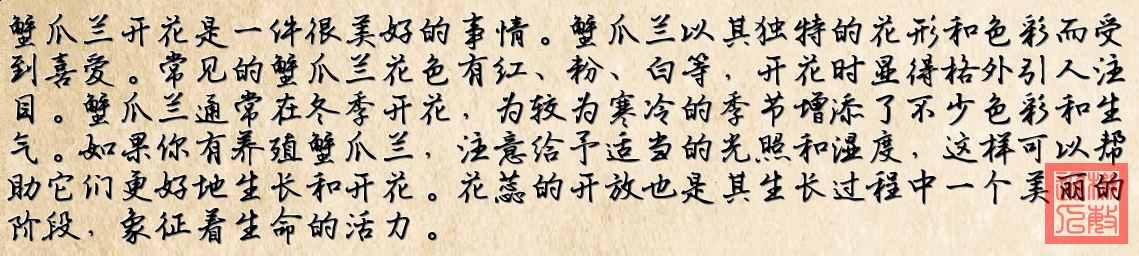 蟹爪兰开花是一件很美好的事情。蟹爪兰以其独特的花形和色彩而受
到喜爱。常见的蟹爪兰花色有红、粉、白等，开花时显得格外引人注
目。蟹爪兰通常在冬季开花，为较为寒冷的季节增添了不少色彩和生
气。如果你有养殖蟹爪兰，注意给予适当的光照和湿度，这样可以帮
助它们更好地生长和开花。花蕊的开放也是其生长过程中一个美丽的
阶段，象征着生命的活力。